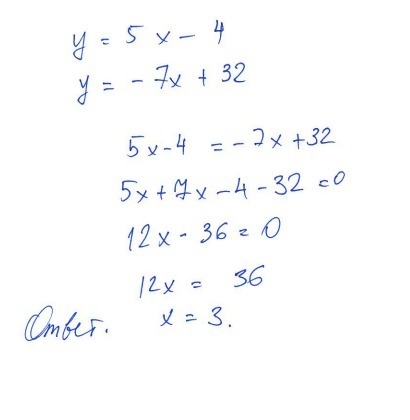 y = 5x - 4
y = -7x + 32
5x-4 = -7x+32
5x+7x-4-32=0
12x-36=0
12x = 36
Ответ. x = 3.